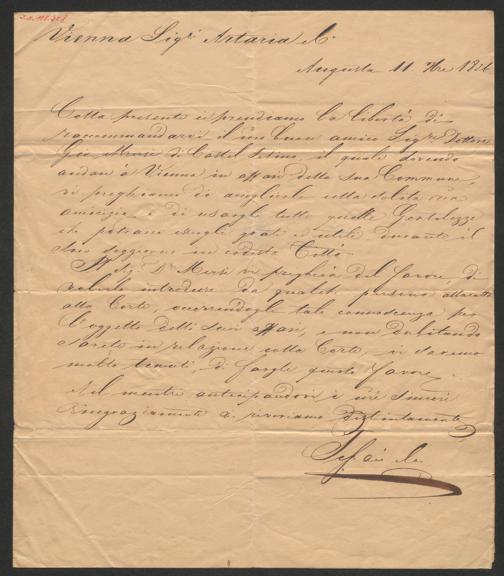 Vienna Sig.ri Artaria & C.
Augusta 11. 1826
Colla presente ci prendiamo la libertà di
raccommandarvi il buon amico Sig.re Dottore
Gio. di Castel Tesino, il quale dovendo
andar a Vienna in affari della sua Commune,
vi preghiamo di accoglierlo colla solita
amicizia, e di usargli tutte quelle Gentilezze
che potranno essergli grate ed utile durante il
suo soggiorno in codesta Città.
Il Sig. D. vi pregherà del favore, di
volerlo introdurre da qualche persona
alla Corte, occorrendogli tale conoscenza per
l'oggetto delli suoi affari, e non dubitando
sarete in relazione colla Corte, vi saremo
molto tenuti, di fargli questo favore.
Nel mentre anticipandovi i sinceri
ringraziamenti vi riveriamo distintamente